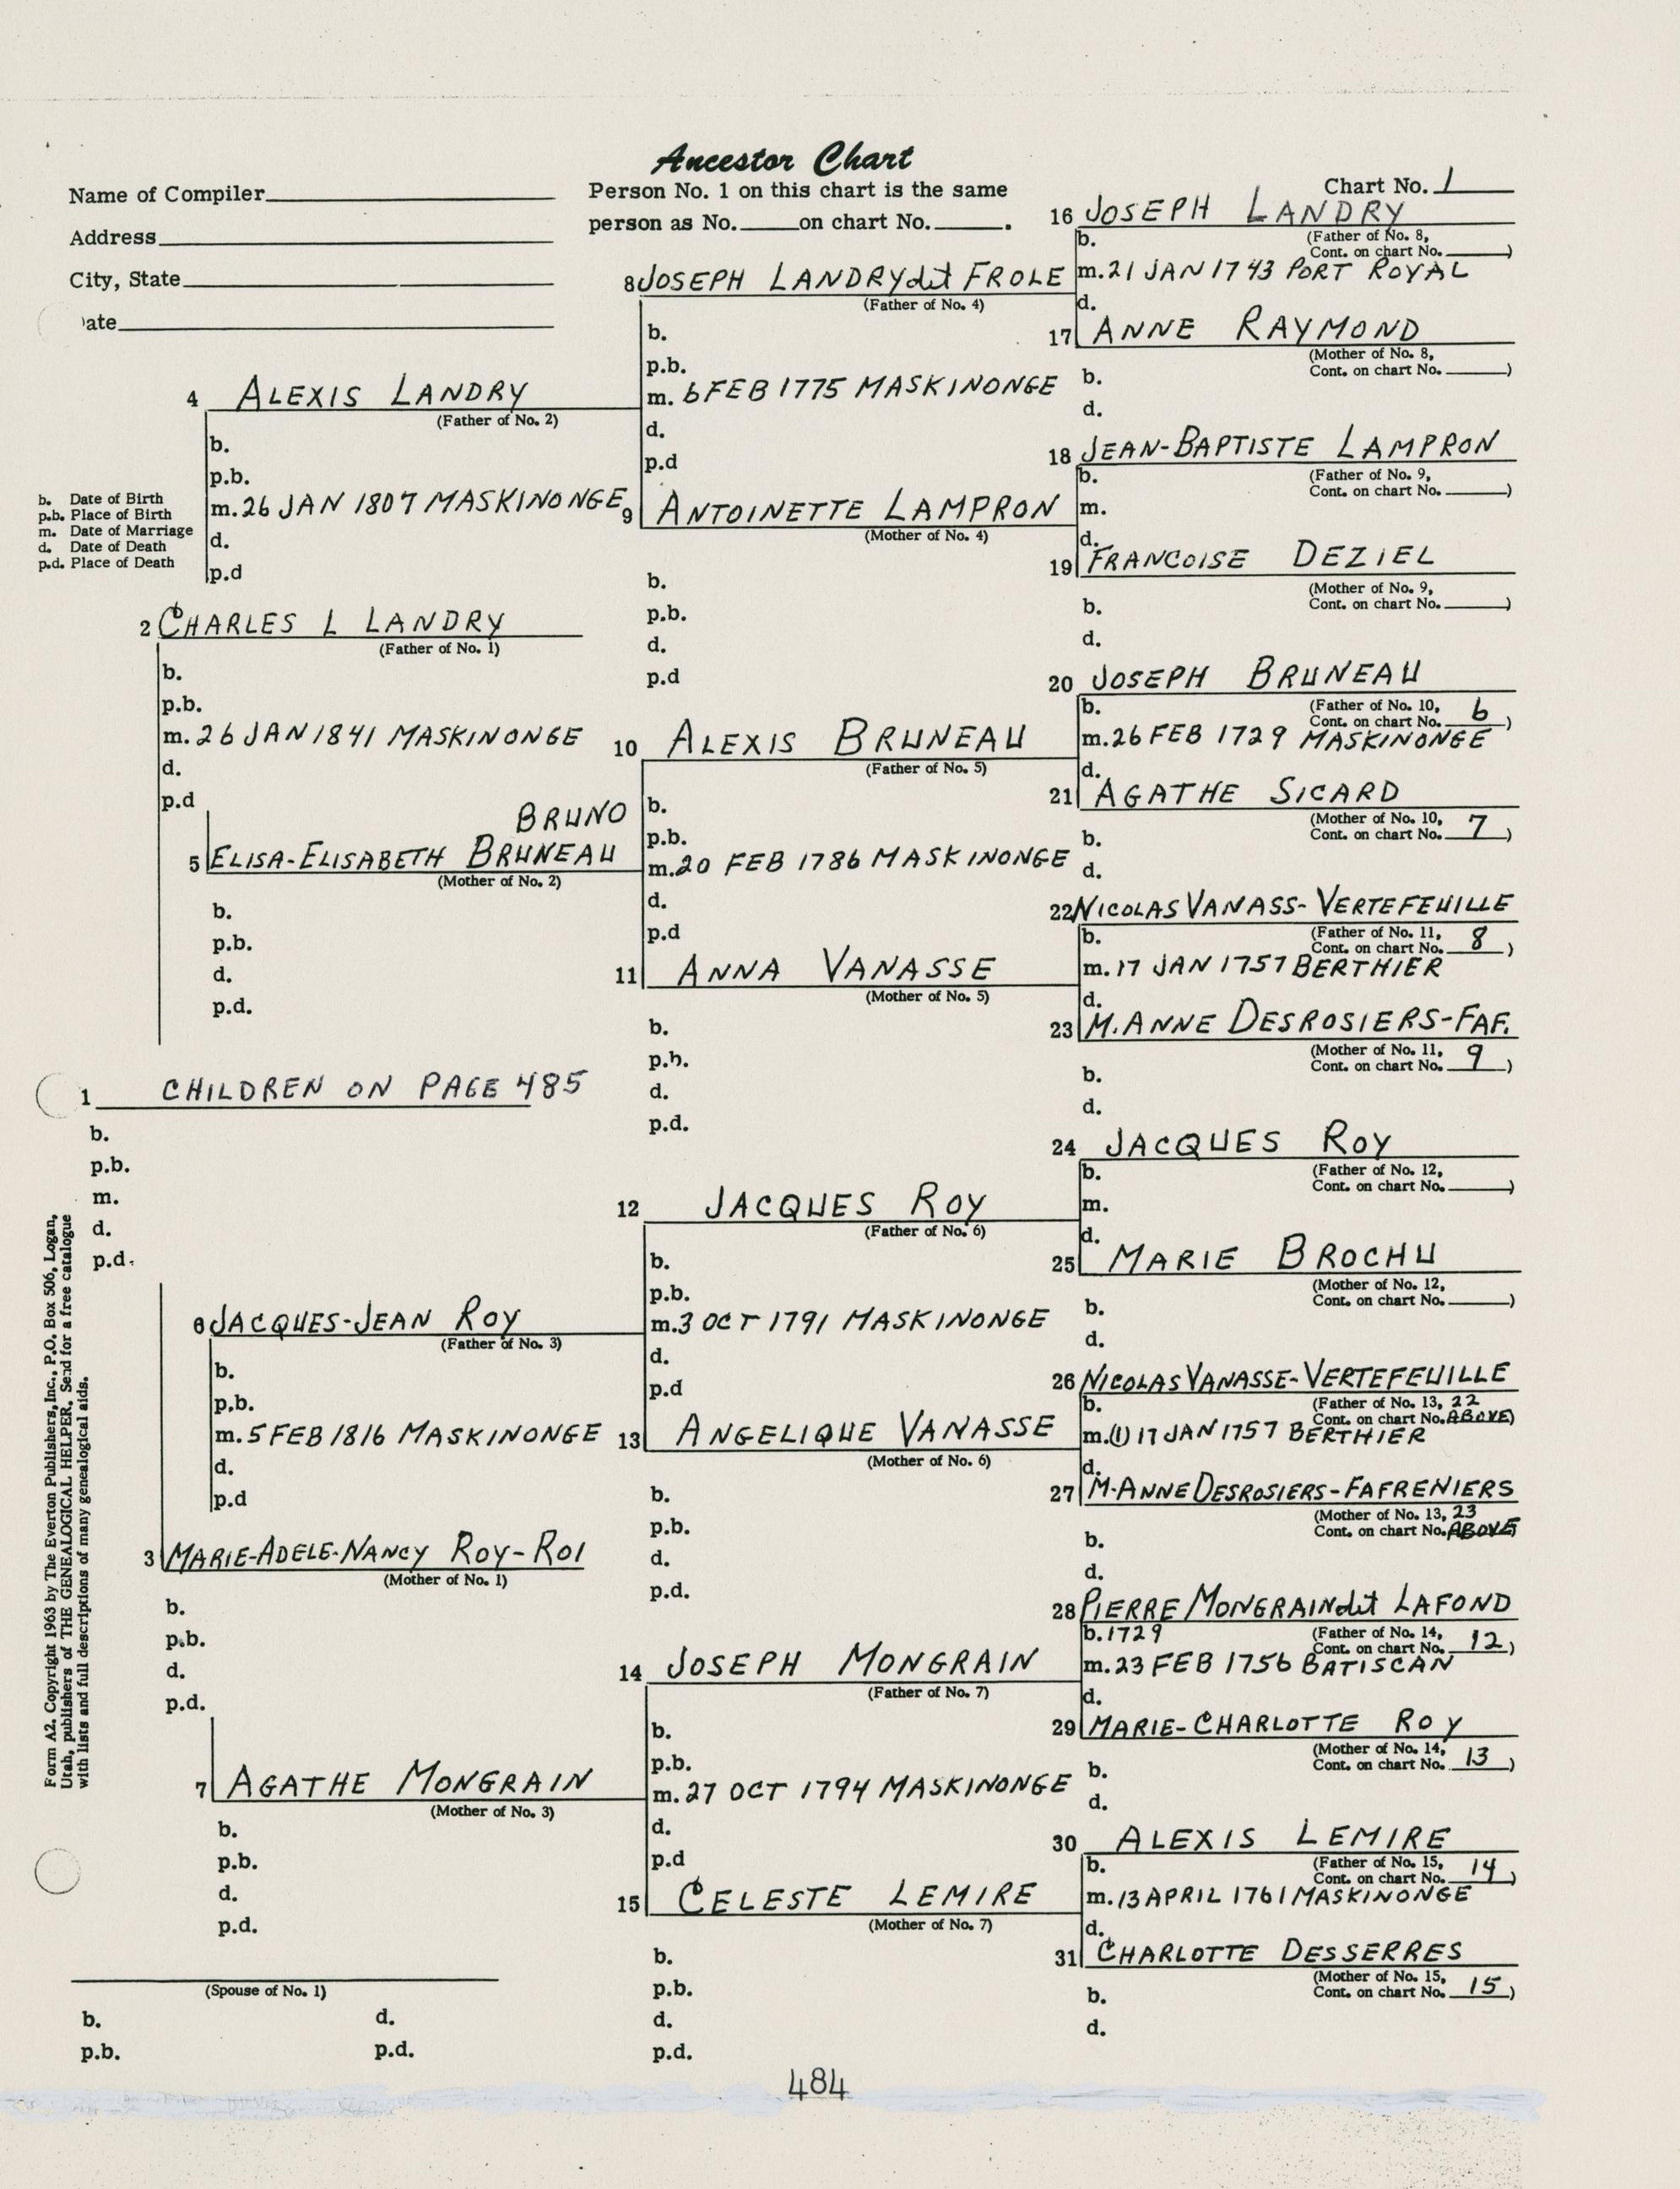 Ancestor Chart
Name of Compiler
Address
City, State
ate
Person No. 1 on this chart is the same
person as No. on chart No. .
Chart No. 1
b. Date of Birth
p.b. Place of Birth
m. Date of Marriage
d. Date of Death
p.d. Place of Death
1 CHILDREN ON PAGE 485
b.
p.b.
m.
d.
p.d.
2 CHARLES L LANDRY
(Father of No. 1)
b.
p.b.
m. 26 JAN 1841 MASKINONGE
d.
p.d
3 MARIE-ADELE-NANCY ROY-ROI
(Mother of No. 1)
b.
p.b.
d.
p.d.
4 ALEXIS LANDRY
(Father of No. 2)
b.
p.b.
m. 26 JAN 1807 MASKINONGE
d.
p.d
BRUNO
5 ELISA-ELISABETH BRUNEAU
(Mother of No. 2)
b.
p.b.
d.
p.d.
6 JACQUES-JEAN ROY
(Father of No. 3)
b.
p.b.
m. 5 FEB 1816 MASKINONGE
d.
p.d
7 AGATHE MONGRAIN
(Mother of No. 3)
b.
p.b.
d.
p.d.
(Spouse of No. 1)
b. d.
p.b. p.d.
8 JOSEPH LANDRY dit FROLE
(Father of No. 4)
b.
p.b.
m. 6 FEB 1775 MASKINONGE
d.
p.d
9 ANTOINETTE LAMPRON
(Mother of No. 4)
b.
p.b.
d.
p.d
10 ALEXIS BRUNEAU
(Father of No. 5)
b.
p.b.
m. 20 FEB 1786 MASKINONGE
d.
p.d
11 ANNA VANASSE
(Mother of No. 5)
b.
p.b.
d.
p.d.
12 JACQUES ROY
(Father of No. 6)
b.
p.b.
m. 3 OCT 1791 MASKINONGE
d.
p.d
13 ANGELIQUE VANASSE
(Mother of No. 6)
b.
p.b.
d.
p.d.
14 JOSEPH MONGRAIN
(Father of No. 7)
b.
p.b.
m. 27 OCT 1794 MASKINONGE
d.
p.d
15 CELESTE LEMIRE
(Mother of No. 7)
b.
p.b.
d.
p.d.
16 JOSEPH LANDRY
b. (Father of No. 8,
Cont. on chart No. )
m. 21 JAN 1743 PORT ROYAL
d.
17 ANNE RAYMOND
(Mother of No. 8,
b. Cont. on chart No. )
d.
18 JEAN-BAPTISTE LAMPRON
b. (Father of No. 9,
Cont. on chart No. )
m.
d.
19 FRANCOISE DEZIEL
(Mother of No. 9,
b. Cont. on chart No. )
d.
20 JOSEPH BRUNEAU
b. (Father of No. 10,
Cont. on chart No. 6 )
m. 26 FEB 1729 MASKINONGE
d.
21 AGATHE SICARD
(Mother of No. 10,
b. Cont. on chart No. 7 )
d.
22 NICOLAS VANASS-VERTEFEUILLE
b. (Father of No. 11,
Cont. on chart No. 8 )
m. 17 JAN 1757 BERTHIER
d.
23 M. ANNE DESROSIERS-FAF.
(Mother of No. 11,
Cont. on chart No. 9 )
b.
d.
24 JACQUES ROY
b. (Father of No. 12,
Cont. on chart No. )
m.
d.
25 MARIE BROCHU
(Mother of No. 12,
b. Cont. on chart No. )
d.
26 NICOLAS VANASSE-VERTEFEUILLE
b. (Father of No. 13, 22
Cont. on chart No. ABOVE)
m. (1) 17 JAN 1757 BERTHIER
d.
27 M-ANNE DESROSIERS-FAFRENIERS
(Mother of No. 13, 23
Cont. on chart No. ABOVE
b.
d.
28 PIERRE MONGRAIN dit LAFOND
b. 1729 (Father of No. 14,
Cont. on chart No. 12 )
m. 23 FEB 1756 BATISCAN
d.
29 MARIE-CHARLOTTE ROY
(Mother of No. 14,
b. Cont. on chart No. 13 )
d.
30 ALEXIS LEMIRE
b. (Father of No. 15,
Cont. on chart No. 14 )
m. 13 APRIL 1761 MASKINONGE
d.
31 CHARLOTTE DESSERRES
(Mother of No. 15,
b. Cont. on chart No. 15 )
d.
Form A2. Copyright 1963 by The Everton Publishers, Inc., P.O. Box 506, Logan,
Utah, publishers of THE GENEALOGICAL HELPER. Send for a free catalogue
with lists and full descriptions of many genealogical aids.
484